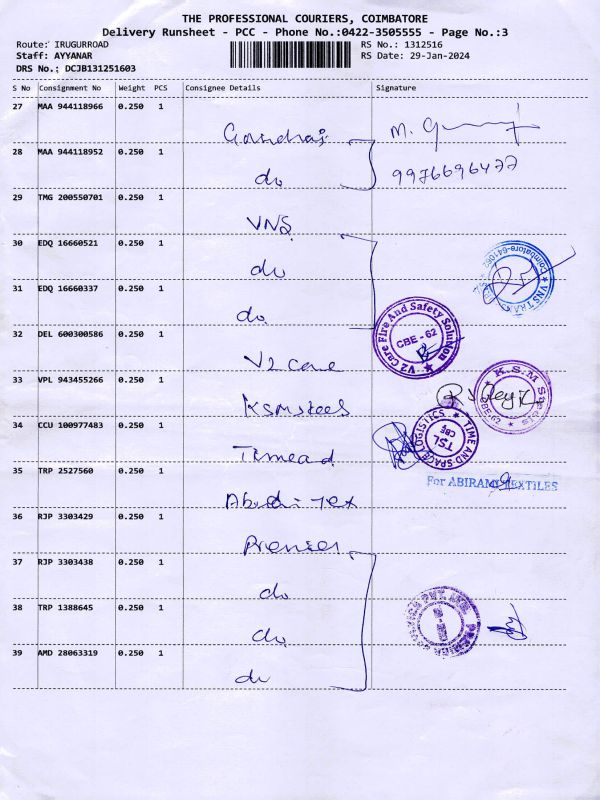 THE PROFESSIONAL COURIERS, COIMBATORE
Delivery Runsheet - PCC - Phone No.:0422-3505555 - Page No.:3
Route: IRUGURROAD RS No.: 1312516
Staff: AYYANAR RS Date: 29-Jan-2024
DRS No.: DCJB131251603
S No Consignment No Weight PCS Consignee Details Signature
27 MAA 944118966 0.250 1
M.
28 MAA 944118952 0.250 1 do
9976696477
29 TMG 200550701 0.250 1 VNS
30 EDQ 16660521 0.250 1 do
VNS Coimbatore-641062
31 EDQ 16660337 0.250 1 do
32 DEL 600300586 0.250 1 V2 care
V2 Care Fire And Safety Solution
CBE - 62
33 VPL 943455266 0.250 1 KSM steels
K.S.M Steels
CBE-62
34 CCU 100977483 0.250 1
TIME AND SPACE LOGISTICS
TSL
CBE
35 TRP 2527560 0.250 1 Tex
For ABIRAMI TEXTILES
36 RJP 3303429 0.250 1 Premier
37 RJP 3303438 0.250 1 do
38 TRP 1388645 0.250 1 do
PREMIER PVT. LTD.
39 AMD 28063319 0.250 1 do